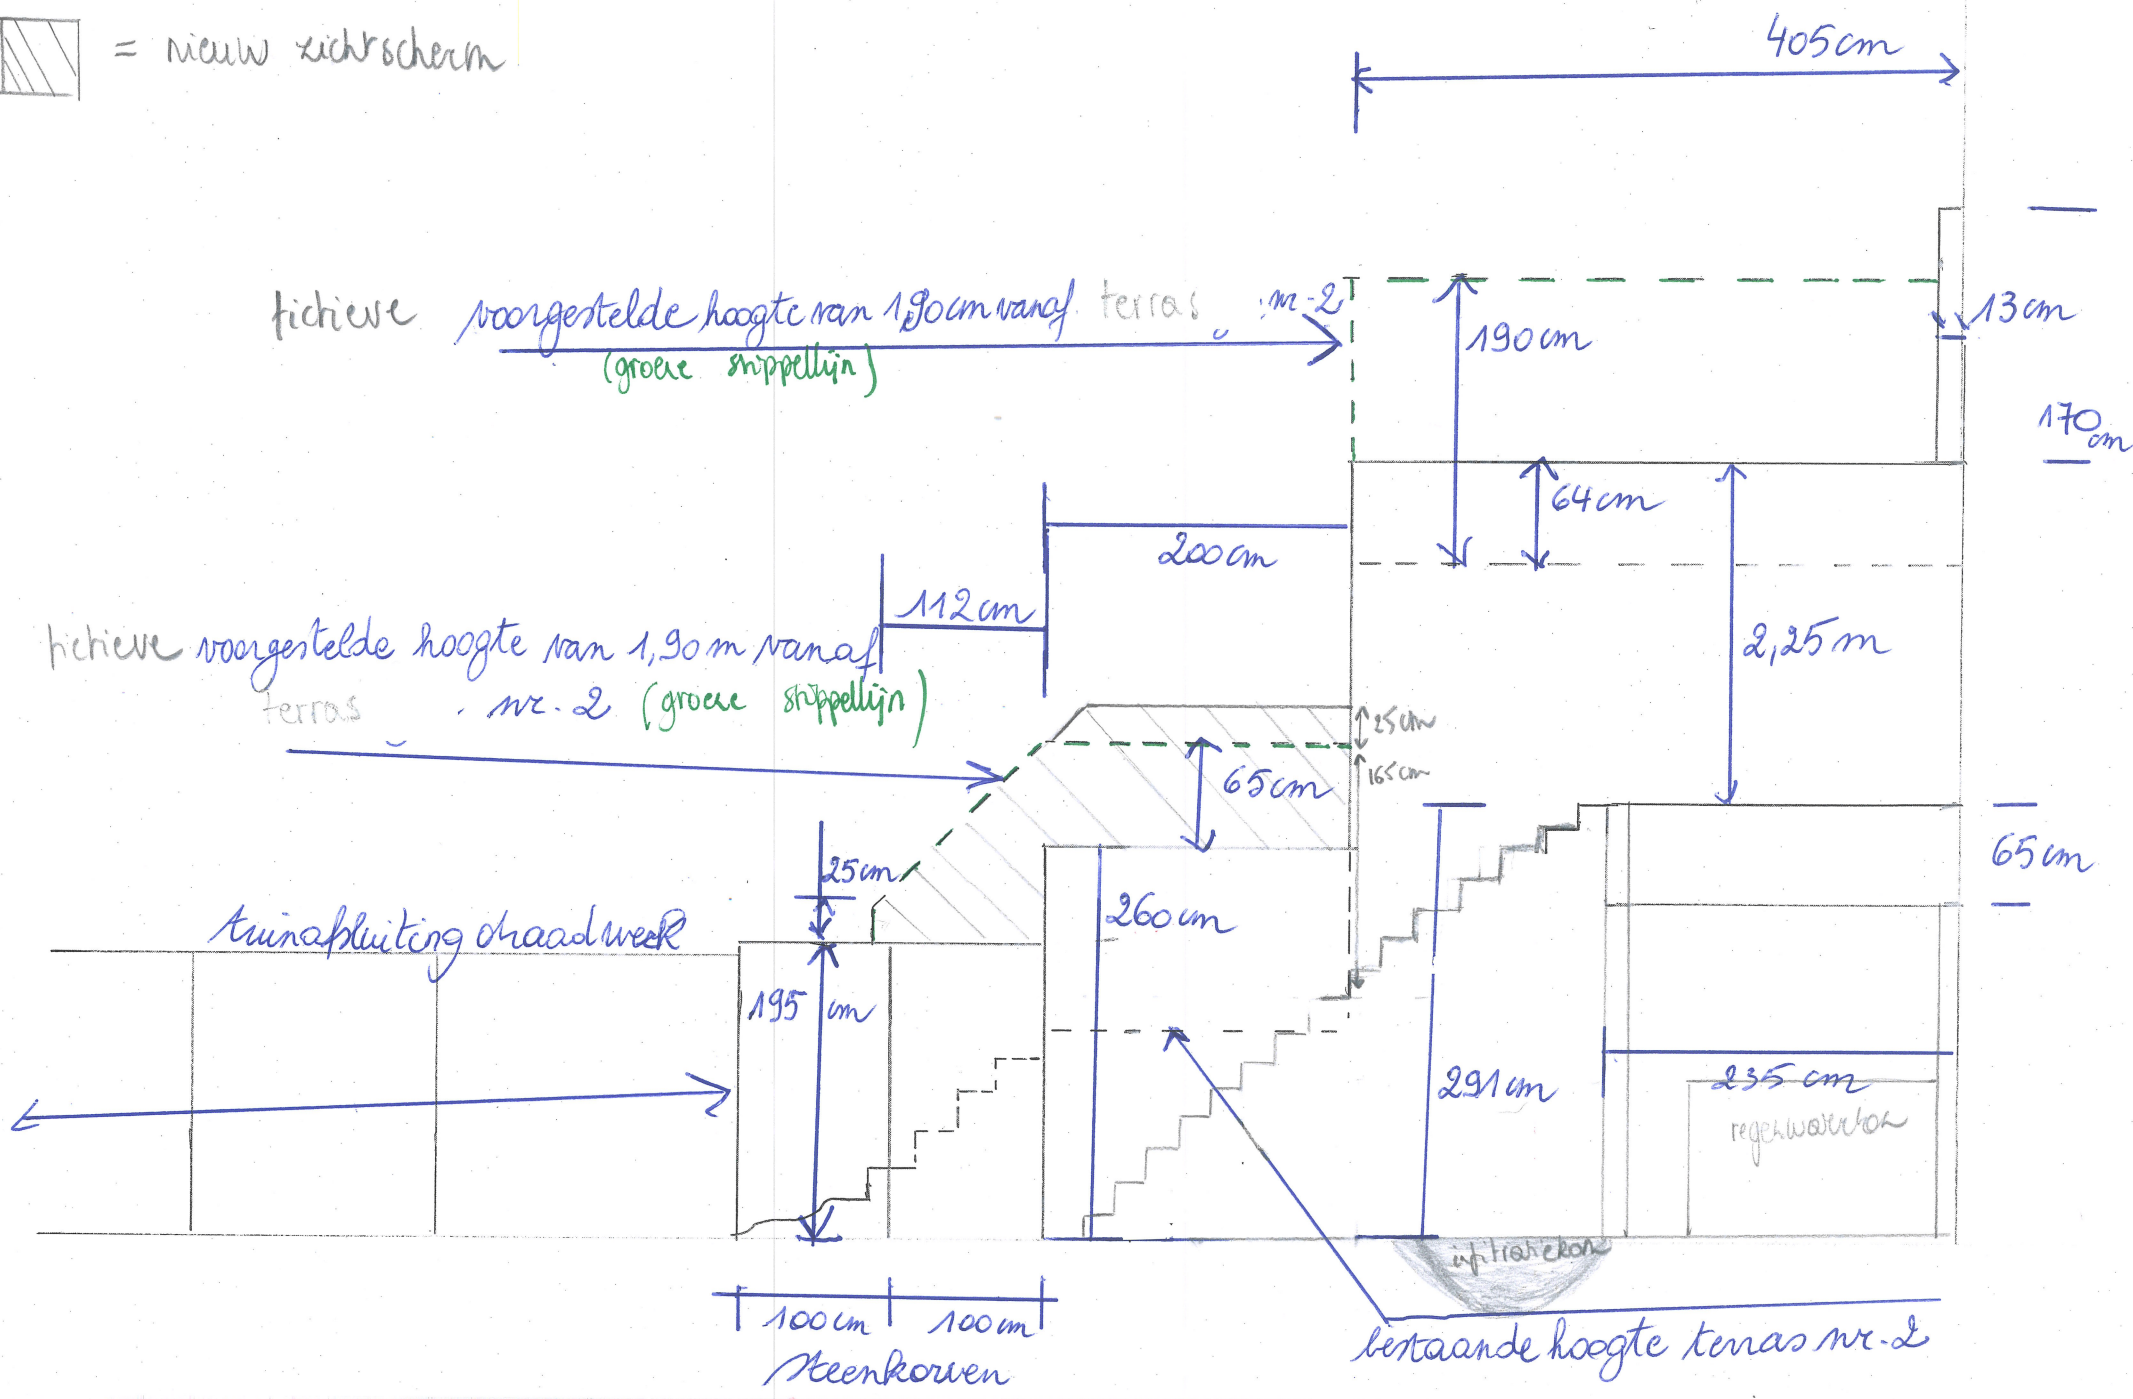 = nieuw zichtscherm
405cm
fictieve voorgestelde hoogte van 1,90cm vanaf terras nr. 2
(groene stippellijn)
190cm
13cm
170
cm
64cm
200cm
112cm
fictieve voorgestelde hoogte van 1,90m vanaf
terras nr. 2 (groene stippellijn)
2,25m
25cm
165cm
65cm
65cm
25cm
260cm
tuinafsluiting draadwerk
195 cm
291cm
235 cm
regenwaterton
infiltratiekom
100cm 100cm
steenkorven
bestaande hoogte terras nr. 2